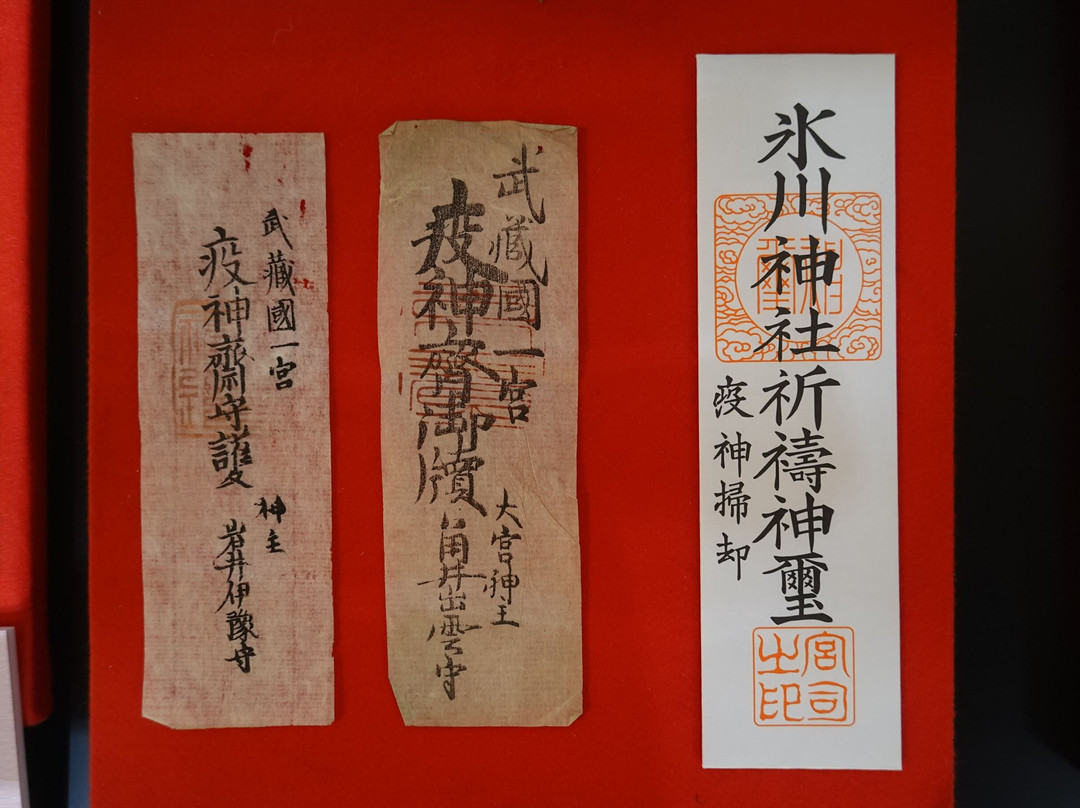 氷川神社祈禱神璽
疫神掃却
宮司之印
武藏國一宮
疫神齋御牘
大宮神主
角井出雲守
武藏國一宮
疫神齋守護
神主
岩井伊豫守